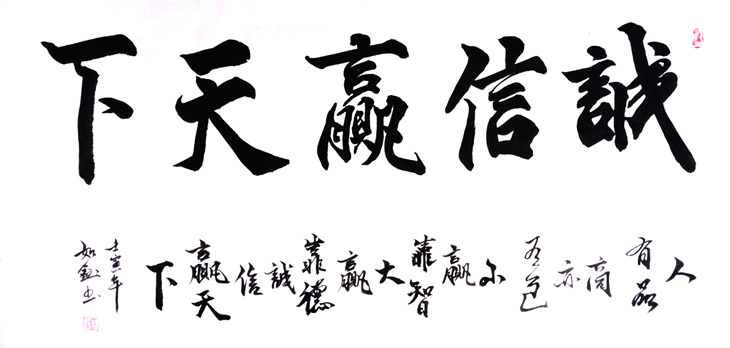 誠信贏天下
人有品商亦有道小贏靠智大贏靠德誠信贏天下
壬寅年
如